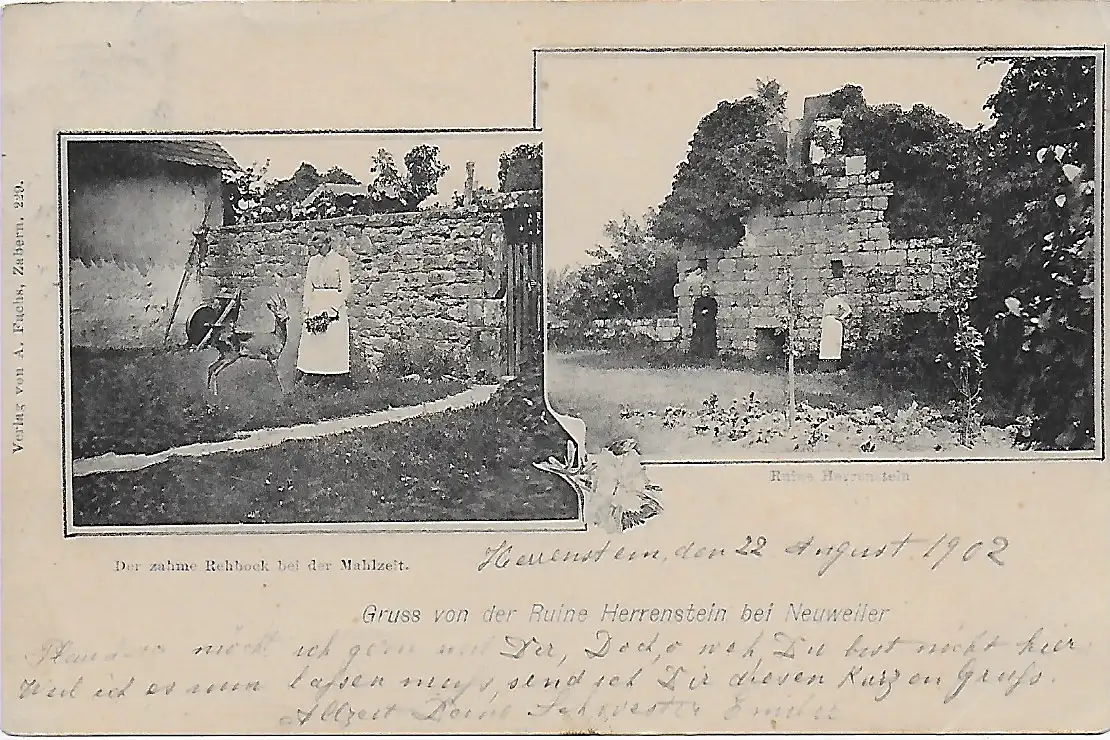 Verlag von A. Fuchs, Zabern. 229.
Ruine Herrenstein
Der zahme Rehbock bei der Mahlzeit.
Herrenstein, den 22 August. 1902
Gruss von der Ruine Herrenstein bei Neuweiler
möcht ich gern mit Dir, Doch, o weh Du bist nicht hier
Weil ich es nun lassen muss, send ich Dir diesen Kurzen Gruss.
Allzeit Deine Schwester